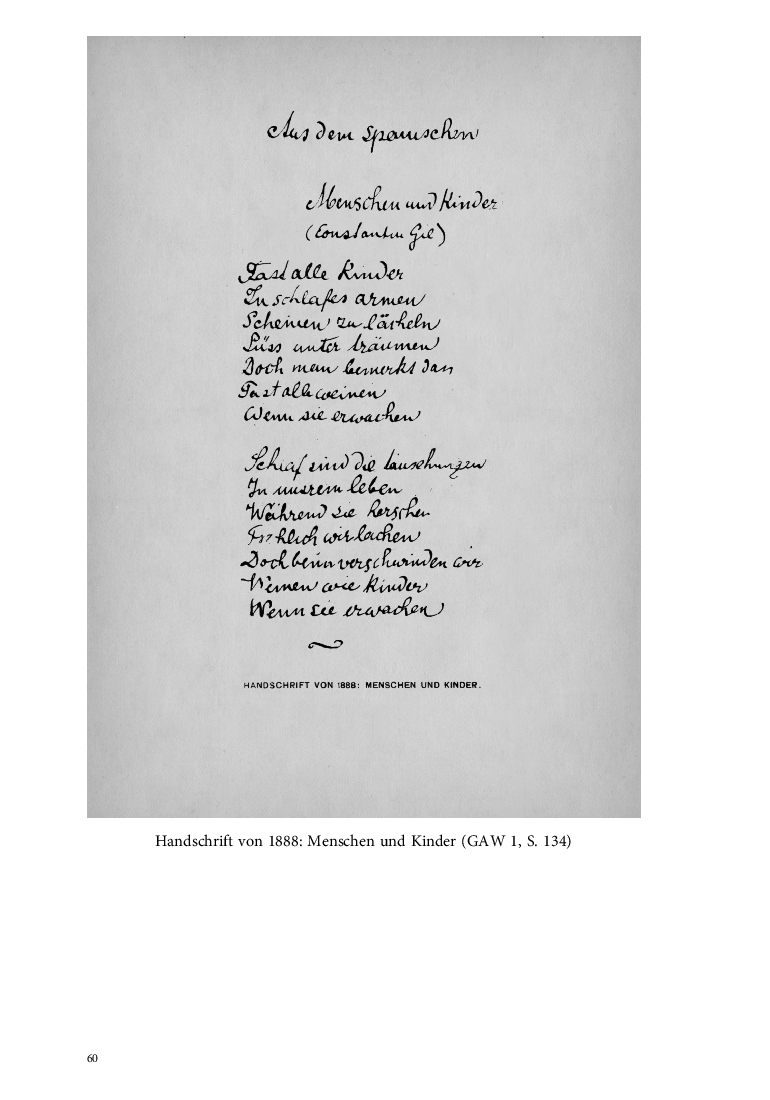 Aus dem spanischen
Menschen und Kinder
(Constantin Gil)
Fast alle Kinder
In schlafes armen
Scheinen zu lächeln
Süss unter träumen
Doch man bemerkt dass
Fast alle weinen
Wenn sie erwachen
Schlaf sind die täuschungen
In unsrem leben
Während sie herschen
Fröhlich wir lachen
Doch beim verschwinden wir
Weinen wie kinder
Wenn sie erwachen
HANDSCHRIFT VON 1888: MENSCHEN UND KINDER.
Handschrift von 1888: Menschen und Kinder (GAW 1, S. 134)
60